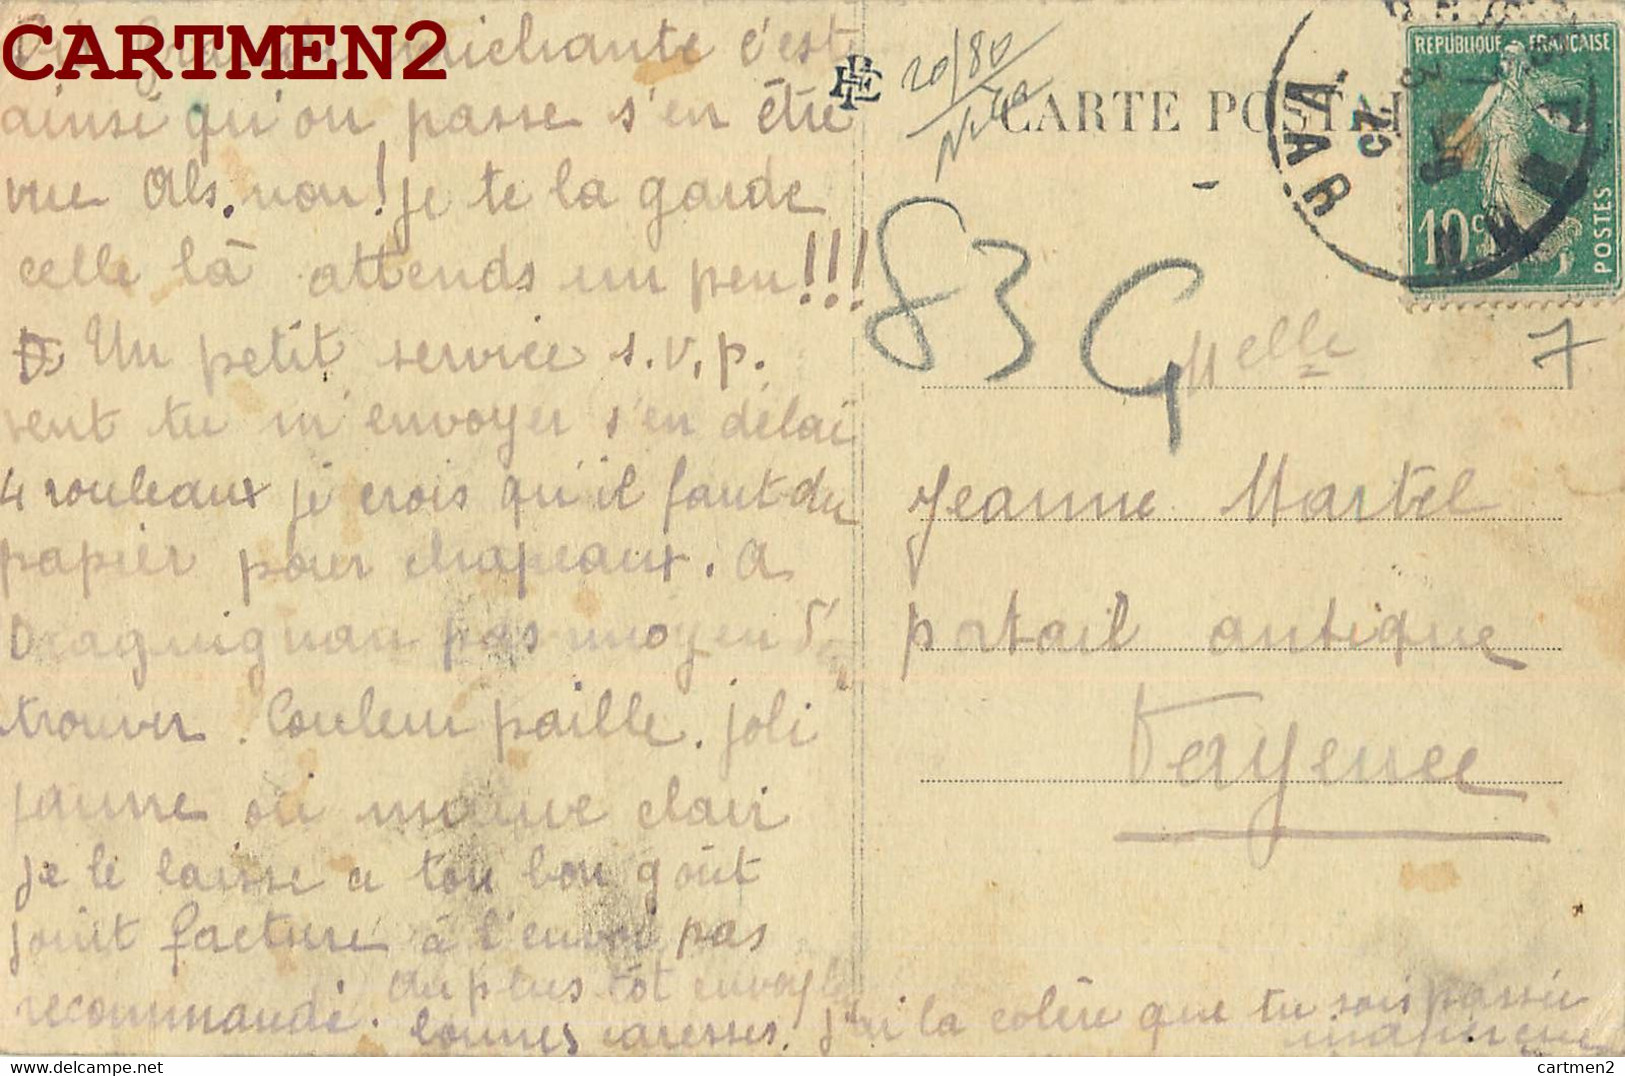 CARTMEN2
michante c'est
ainsi qu'on passe s'en être
vue Als. non! je te la garde
celle là attends un peu!!!
Un petit service s.v.p.
veut tu m'envoyer s'en délai
4 rouleaux je crois qu'il faut du
papier pour chapeaux. A
Draguignan pas moyen d'en
trouver. Couleur paille. joli
jaune ou mauve clair
je le laisse a ton bon goût
joint facture à l'envoi pas
recommandé. Au plus tôt
bonnes caresses. j'ai la colère que tu sois passée
CARTE POSTALE
20/80
83 G
7
RÉPUBLIQUE FRANÇAISE
10c
POSTES
VAR
25
Melle
Jeanne Martel
portail antique
Fayence
cartmen2